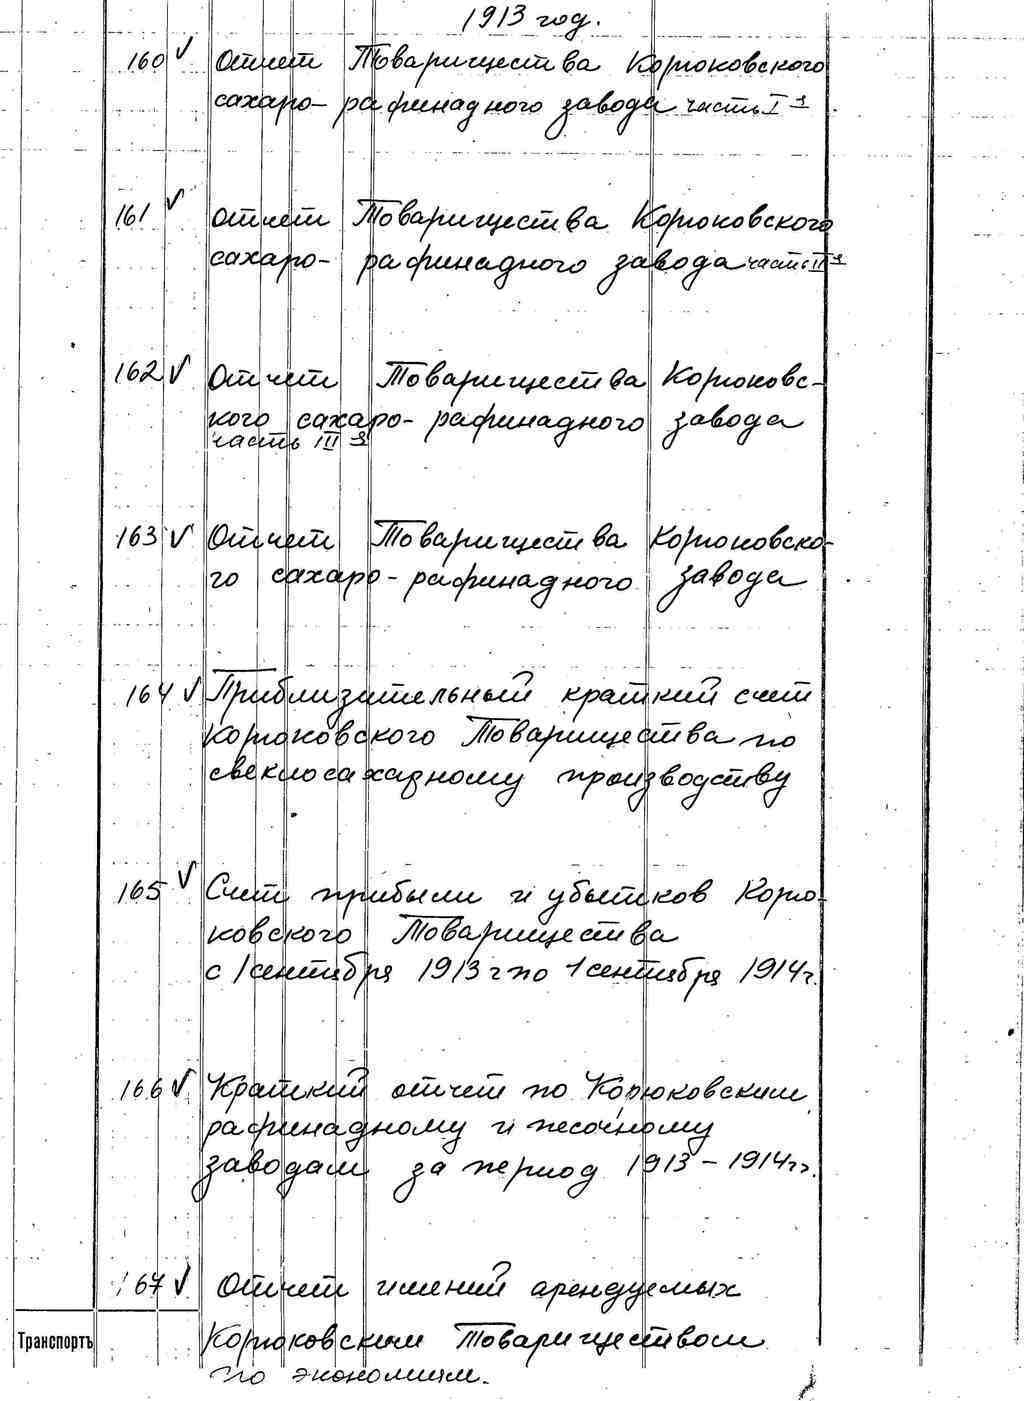 1913 год.
160 V Отчет Товарищества Корюковского
сахаро- рафинадного завода часть I я
161 V Отчет Товарищества Корюковского
сахаро- рафинадного завода часть II я
162 V Отчет Товарищества Корюковс-
кого сахаро- рафинадного завода
часть III я
163 V Отчет Товарищества Корюковско-
го сахаро- рафинадного завода
164 V Приблизительный краткий счет
Корюковского Товарищества по
свеклосахарному производству
165 V Счет прибыли и убытков Корю-
ковского Товарищества
с 1 сентября 1913 г по 1 сентября 1914 г.
166 V Краткий отчет по Корюковским
рафинадному и песочному
заводам за период 1913 – 1914 гг.
167 V Отчет имений арендуемых
Транспортъ Корюковским Товариществом
по экономиям.